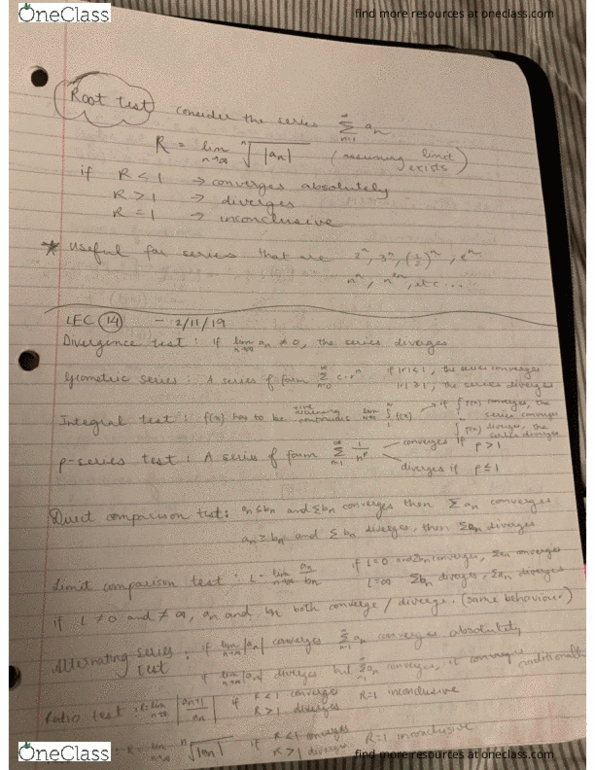 OneClass
find more resources at oneclass.com
Root test consider the series ∞ Σ n=1 an
R = lim n→∞ ⁿ√|an| (assuming limit exists)
if R < 1 → converges absolutely
R > 1 → diverges
R = 1 → inconclusive
* Useful for series that are 2ⁿ, 3ⁿ, (1/2)ⁿ, eⁿ
nⁿ, n²ⁿ, etc...
LEC 14 - 2/11/19
Divergence test : if lim n→∞ an ≠ 0, the series diverges
Geometric series : A series of form ∞ Σ n=0 c·rⁿ if |r|<1, the series converges
|r|≥1, the series diverges
Integral test : f(x) has to be +ive decreasing continuous lim n→∞ ∫ f(x) → if ∫ f(x) converges, the series converges
∫ f(x) diverges, the series diverges
p-series test : A series of form ∞ Σ n=1 1/nᵖ converges if p > 1
diverges if p ≤ 1
Direct comparison test : an ≤ bn and Σbn converges then Σ an converges
an ≥ bn and Σ bn diverges, then Σan diverges
Limit comparison test : L = lim n→∞ an/bn if L=0 and Σbn converges, Σan converges
L=∞ Σbn diverges, Σan diverges
if L ≠ 0 and ≠ ∞, an and bn both converge / diverge. (same behaviour)
Alternating series test : if lim n→∞ |an| converges ∞ Σ n=1 an converges absolutely
if lim n→∞ |an| diverges but ∞ Σ n=1 an converges, it converges conditionally
Ratio test : R= lim n→∞ |an+1/an| if R<1 converges R=1 inconclusive
R>1 diverges
: R = lim n→∞ ⁿ√|an| if R<1 converges R=1, inconclusive
R>1 diverges
OneClass
find more resources at oneclass.com